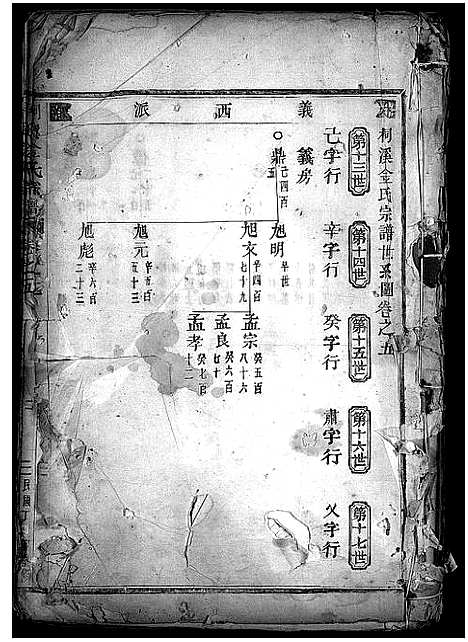 柯溪金氏宗譜世系圖卷之五
義西派
第十三世
己字行
義房
第十四世
辛字行
第十五世
癸字行
第十六世
肅字行
第十七世
乂字行
鼎 己四百五
旭明 辛世
旭文 辛四百七十九
旭元 辛五百五十三
旭彪 辛六百二十三
孟宗 癸五百八十六
孟良 癸六百七十
孟孝 癸七百十二